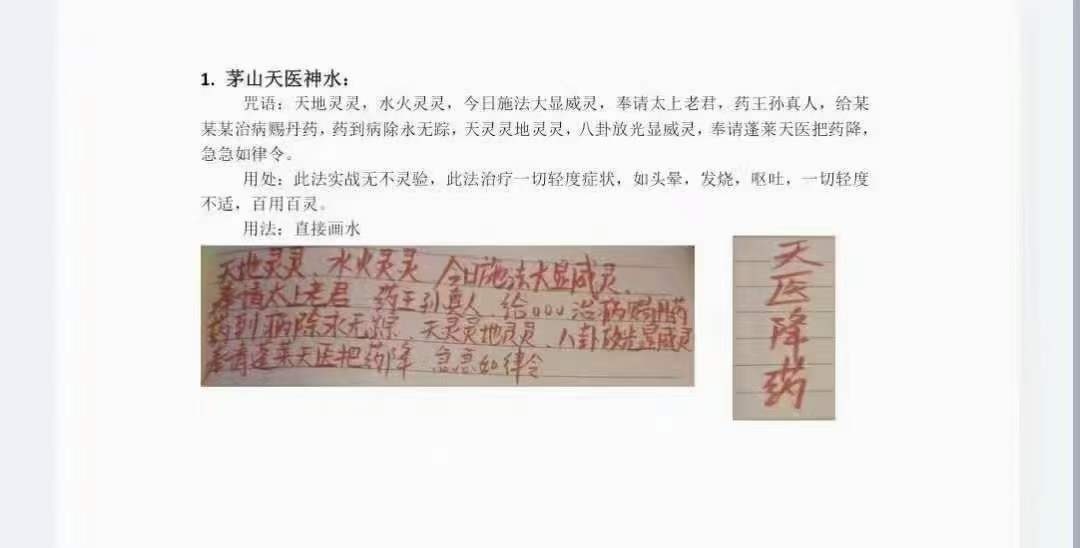 1. 茅山天医神水：
咒语：天地灵灵，水火灵灵，今日施法大显威灵，奉请太上老君，药王孙真人，给某
某某治病赐丹药，药到病除永无踪，天灵灵地灵灵，八卦放光显威灵，奉请蓬莱天医把药降，
急急如律令。
用处：此法实战无不灵验，此法治疗一切轻度症状，如头晕，发烧，呕吐，一切轻度
不适，百用百灵。
用法：直接画水
天地灵灵、水火灵灵 今日施法大显威灵、
奉请太上老君 药王孙真人、给000治病赐丹药
药到病除永无踪、天灵灵地灵灵、八卦放光显威灵
奉请蓬莱天医把药降 急急如律令
天
医
降
药